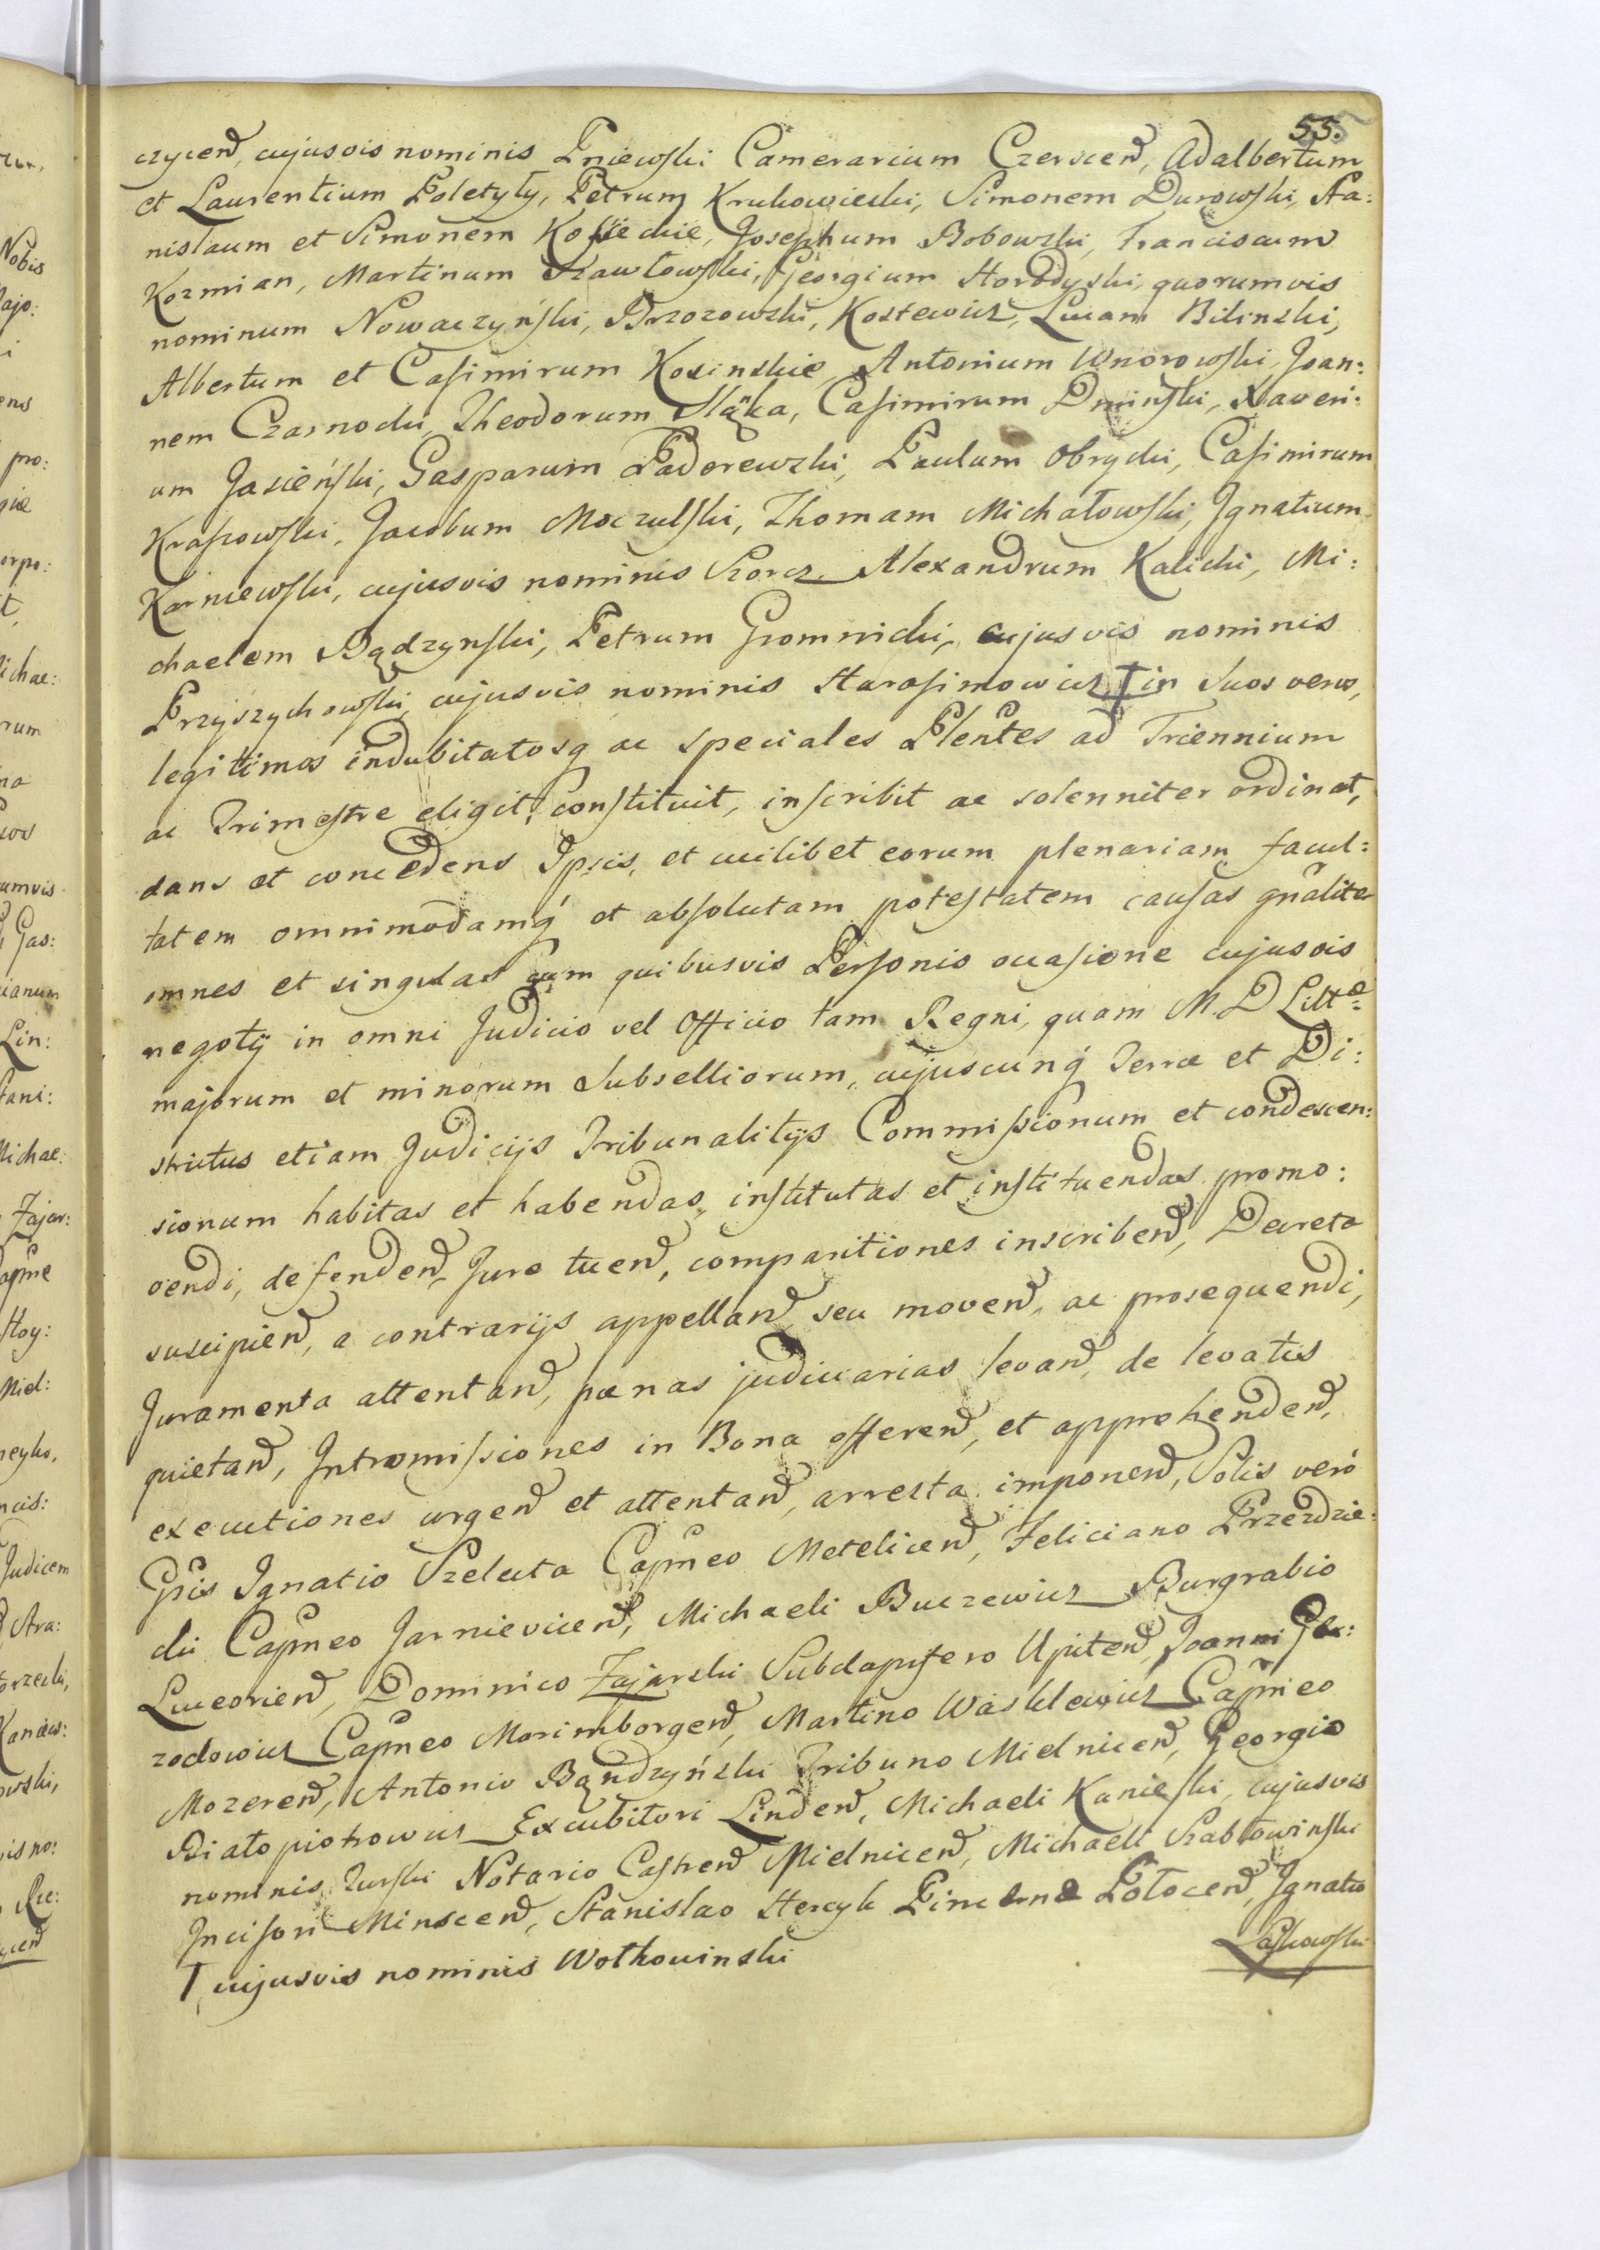 55.
czycen̄, cujusvis nominis Pniewski Camerarium Czerscen̄, Adalbertum
et Laurentium Poletyły, Petrum Krukowiecki, Simonem Durowski, Sta:
nislaum et Simonem Kossieckie, Josephum Bobowski, Franciscum
Kozmian, Martinum Szawłowski, Georgium Horodyski, quorumvis
nominum Nowaczyński, Brzozowski, Kostewicz, Lucam Bilinski,
Albertum et Casimirum Kosinskie, Antonium Wnorowski, Joan:
nem Czarnocki, Theodorum Sląka, Casimirum Dmiński, Xaveri:
um Jasieński, Gasparum Paderewski, Paulum Obrycki, Casimirum
Krasowski, Jacobum Moczulski, Thomam Michałowski, Ignatium
Karniewski, cujusvis nominis Szorc, Alexandrum Kalicki, Mi:
chaelem Bądzynski, Petrum Gromnicki, cujusvis nominis
Przyszychowski, cujusvis nominis Harasimowicz † in Suos veros,
legitimos indubitatosq ac speciales Plen̄tes ad Triennium
ac Trimestre eligit, constituit, inscribit ac solenniter ordinat,
dans et concedens Ipsis, et cuilibet eorum plenariam facul:
tatem omnimodamq́ et absolutam potestatem causas gn̄aliter
omnes et singulas cum quibusvis Personis occasione cujusvis
negotÿ in omni Judicio vel Officio tam Regni, quam M. D Litt̄æ
majorum et minorum Subselliorum, cujuscunq́ Terræ et Di:
strictus etiam Judicijs Tribunalitijs Commissionum et condescen:
sionum habitas et habendas, institutas et instituendas promo:
vendi, defenden̄, Jure tuen̄, comparitiones inscriben̄, Decreta
suscipien̄, a contrarijs appellan̄ seu moven̄, ac prosequendi,
Juramenta attentan̄, pœnas judiciarias levan̄, de levatis
quietan̄, Intromissiones in Bona offeren̄, et apprehenden̄,
executiones urgen̄ et attentan̄, arresta imponen̄, Solis veró
Gn̄is Ignatio Szeluta Capn̄eo Metelicen̄, Feliciano Przezdzie:
cki Capn̄eo Jarnievicen̄, Michaeli Buczewicz Burgrabio
Luceorien̄, Dominico Zajarski Subdapifero Upiten̄, Joanni
zodowicz Capn̄eo Morimborgen̄, Martino Wasklewicz Capn̄eo
Mozeren̄, Antonio Bąndzyński Tribuno Mielnicen̄, Georgio
Białopiotrowicz Excubitori Linden̄, Michaeli Kanieski, cujusvis
nominis Turski Notario Castren̄ Mielnicen̄, Michaeli Szabłowinski
Incisori Minscen̄, Stanislao Hercyk Pincernæ Połocen̄, Ignatio
† cujusvis nominis Wołkowinski
Laskowski